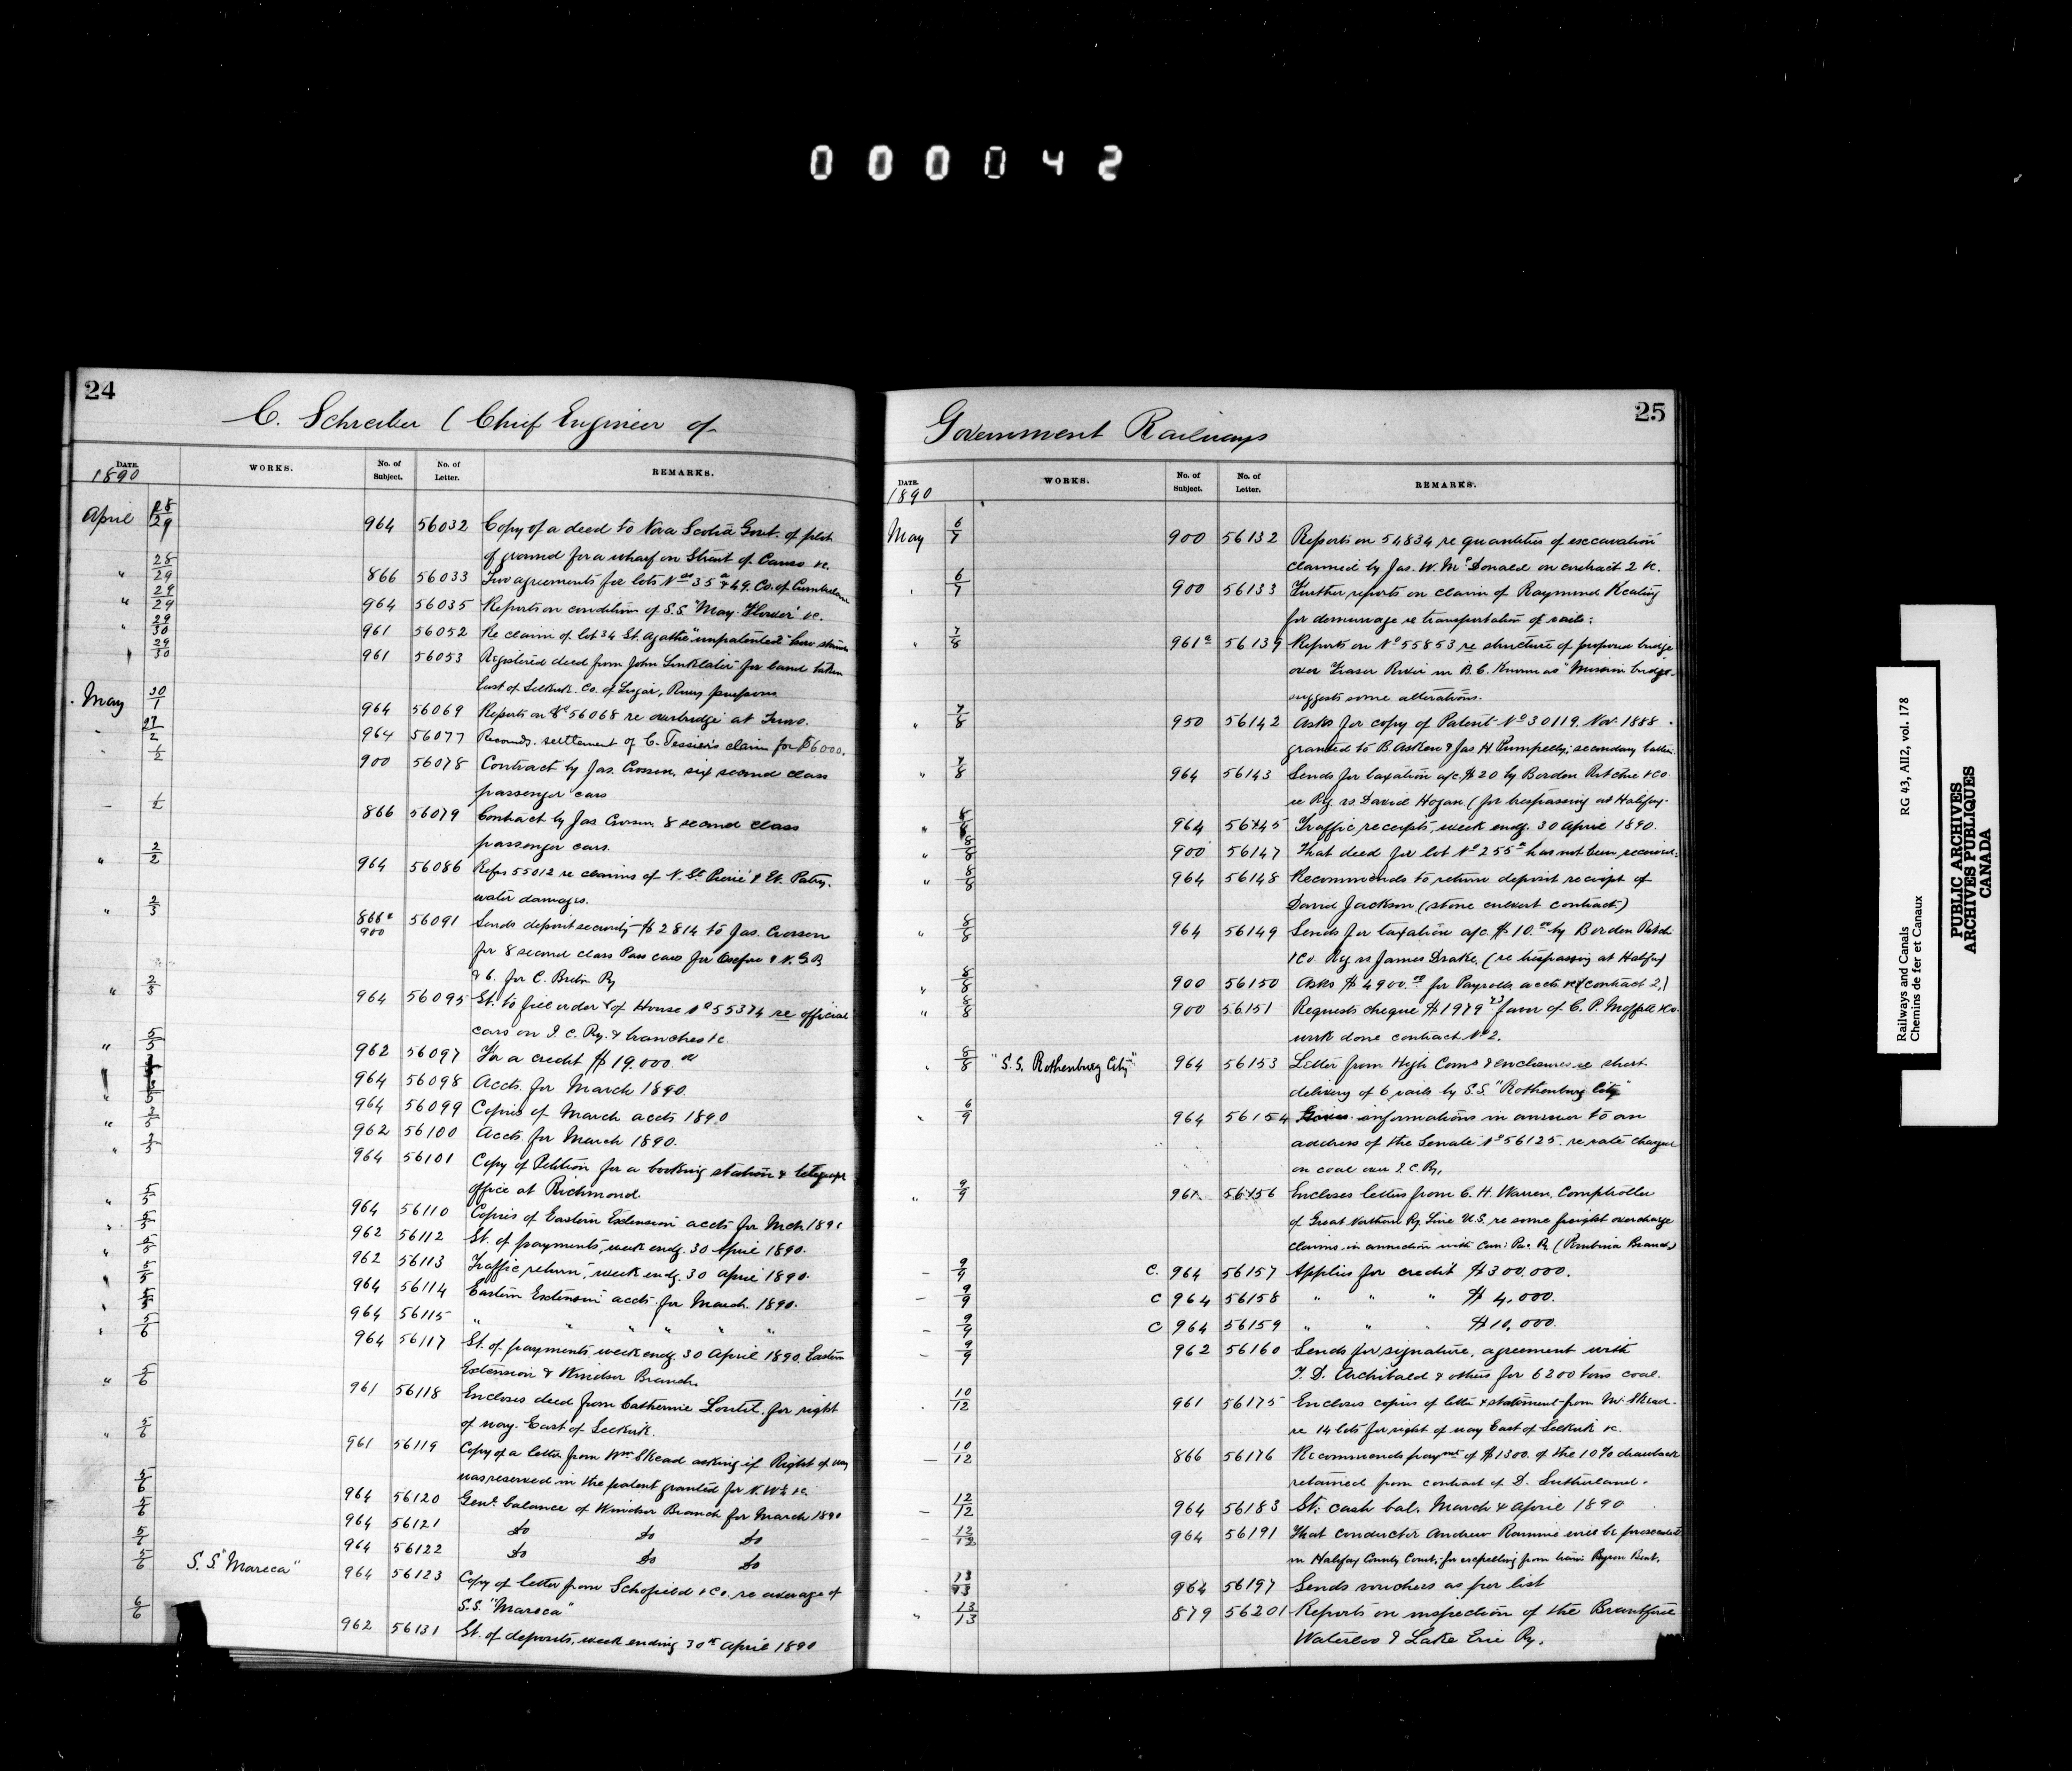 000042
24
C. Schreiber (Chief Engineer of
DATE.
1890
WORKS.
No. of Subject.
No. of Letter.
REMARKS.
April 28/29 964 56032 Copy of a deed to Nova Scotia Govt. of plot
of ground for a wharf on Strait of Canso &c.
" 28/29 866 56033 Two agreements for lots Nos 35a & 49. Co. of Cumberland
" 29/29 964 56035 Reports on condition of S.S. "May Flower" &c.
" 29/30 961 56052 Re claim of lot 34 St. Agathe "unpatented"
" 29/30 961 56053 Registered deed from John Linklater for land taken
East of Selkirk. Co. of Lisgar, Rway purposes
May 30/1 964 56069 Reports on No 56068 re overbridge at Truro.
27/2 964 56077 Recomds. settlement of C. Tessier's claim for $6000.
1/2 900 56078 Contract by Jas. Crossen, six second class
passenger cars
1/2 866 56079 Contract by Jas Crossen 8 second class
passenger cars.
" 2/2 964 56086 Refers 55012 re claims of N. St. Pierre & Et. Patry.
water damages.
" 2/3 866a 900 56091 Sends deposit security $2814 to Jas. Crossen
for 8 second class Pass cars for Oxford & N.G.R
& 6. for C. Breton Ry
" 2/3 964 56095 St. to file order of House No 55374 re official
cars on I.C. Ry. & branches &c.
" 5/5 962 56097 For a credit $19.000.00
964 56098 Accts. for March 1890.
964 56099 Copies of March accts 1890
" 3/5 962 56100 Accts. for March 1890.
" 3/5 964 56101 Copy of Petition for a booking station & telegraph
office at Richmond
" 5/5 964 56110 Copies of Eastern Extension accts for Mch 1890
" 5/5 962 56112 St. of payments, week endg. 30 April 1890.
" 5/5 962 56113 Traffic return, week endg. 30 April 1890.
5/5 964 56114 Eastern Extension accts. for March. 1890.
5/5 964 56115 " " " " "
5/6 964 56117 St. of payments week endg. 30 April 1890. Eastern
Extension & Windsor Branch.
" 5/6 961 56118 Encloses deed from Catherine Loutit. for right
of way. East of Selkirk.
" 5/6 961 56119 Copy of a letter from Wm Skead asking if Right of way
was reserved in the patent granted for N.W¼ &c.
5/6 964 56120 Genl. balance of Windsor Branch for March 1890
5/6 964 56121 do do do
5/6 964 56122 do do do
5/6 S.S. "Mareca" 964 56123 Copy of letter from Schofield & Co. re average of
S.S. "Mareca"
6/6 962 56131 St. of deposits, week ending 30th April 1890
25
Government Railways
DATE.
1890
WORKS.
No. of Subject.
No. of Letter.
REMARKS.
May 6/7 900 56132 Reports on 54834 re quantities of excavation
claimed by Jas. W. McDonald on contract 2 &c.
6/7 900 56133 Further reports on claim of Raymond Keating
for demurrage re transportation of rails.
7/8 961a 56139 Reports on No 55853 re structure of proposed bridge
over Fraser River in B.C. Known as "Mission bridge.
suggests some alterations.
" 7/8 950 56142 Asks for copy of Patent No 30119. Nov. 1888
granted to B. Asken & Jas H. Pumpelly; secondary batteri
" 7/8 964 56143 Sends for taxation a/c. $20 by Borden Ritchie & Co.
re Ry. vs. David Hogan (for trespassing at Halifax.
" 8/8 964 56145 Traffic receipts, week endg. 30 April 1890.
" 8/8 900 56147 That deed for lot No 255a has not been received.
" 8/8 964 56148 Recommends to return deposit receipt of
David Jackson (stone culvert contract)
" 8/8 964 56149 Sends for taxation a/c. $10.00 by Borden Ritch
& Co. Ry. vs James Drake. (re trespassing at Halifax)
" 8/8 900 56150 Asks $4900.00 for Payrolls accts &c (contract 2.)
" 8/8 900 56151 Requests cheque $1979 favor of C. P. Moffatt &co.
work done contract No 2.
8/8 "S.S. Rothenburg City" 964 56153 Letter from High Comr & enclosures re short
delivery of 6 rails by S.S. "Rothenburg City"
6/9 964 56154 Gives informations in answer to an
address of the Senate No 56125. re rate charged
on coal over I.C. Ry.
" 9/9 56156 Encloses letters from C. H. Warren. Comptroller
of Great Northern Ry. Line U.S. re some freight overcharge
claims in connection with Can: Pac. Ry. (Pembina Branch)
9/9 C. 964 56157 Applies for credit $300,000.
9/9 C 964 56158 " " " $4,000.
9/9 C 964 56159 " " " $10,000.
9/9 962 56160 Sends for signature, agreement with
T. D. Archibald & others for 6200 tons coal.
10/12 961 56175 Encloses copies of letter & statement from W. Skead.
re 14 lots for right of way East of Selkirk &c.
10/12 866 56176 Recommends paymt of $1300. of the 10% drawback
retained from contract of D. Sutherland.
12/12 964 56183 St: cash bal. March & April 1890
12/12 964 56191 That conductor Andrew Rannie will be prosecuted
in Halifax County Court, for expelling from train Byron Bent.
13/13 964 56197 Sends vouchers as per list
" 13/13 879 56201 Reports on inspection of the Brantford
Waterloo & Lake Erie Ry.
Railways and Canals RG 43, AII2, vol. 178
Chemins de fer et Canaux
PUBLIC ARCHIVES
ARCHIVES PUBLIQUES
CANADA